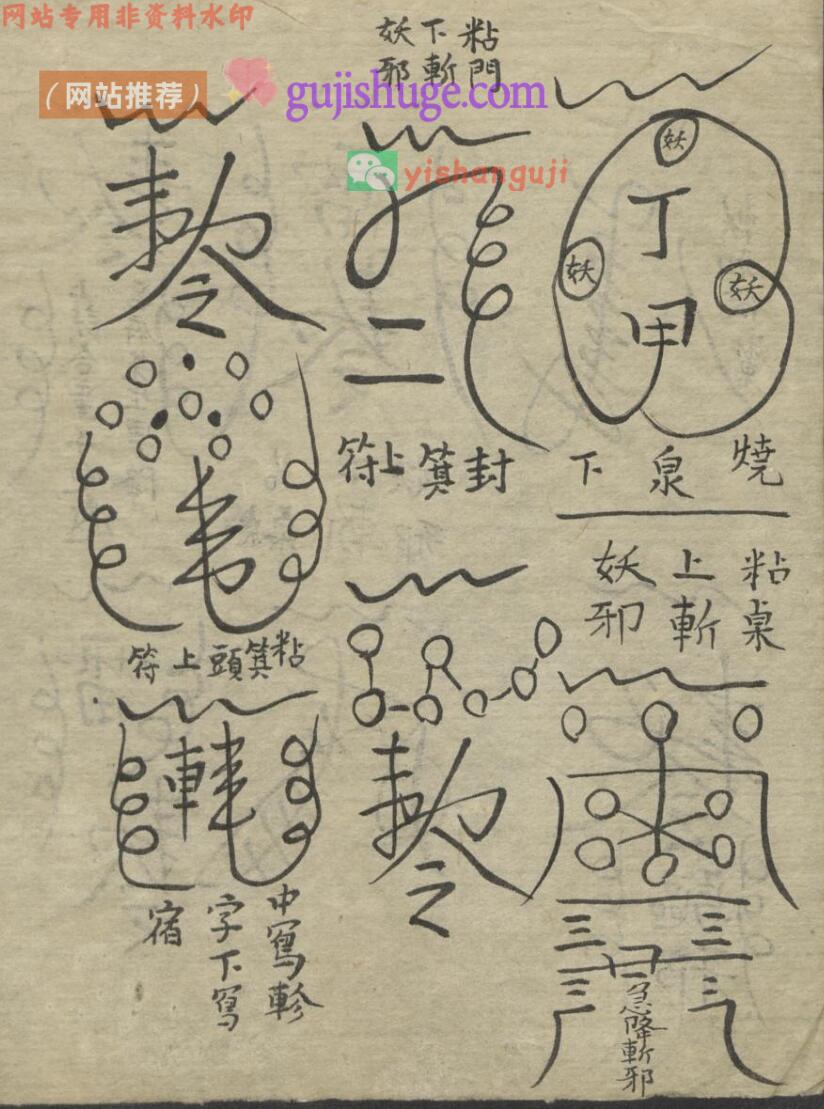 网站专用非资料水印
（网站推荐）
gujishuge.com
yishanguji
粘門
下斬
妖邪
妖
丁
妖
妖
甲
燒泉下
二
封箕上符
敕令
粘箕頭上符
粘桌
上斬
妖邪
三 三
三 三
急降斬邪
敕令
中寫軫
字下寫
宿